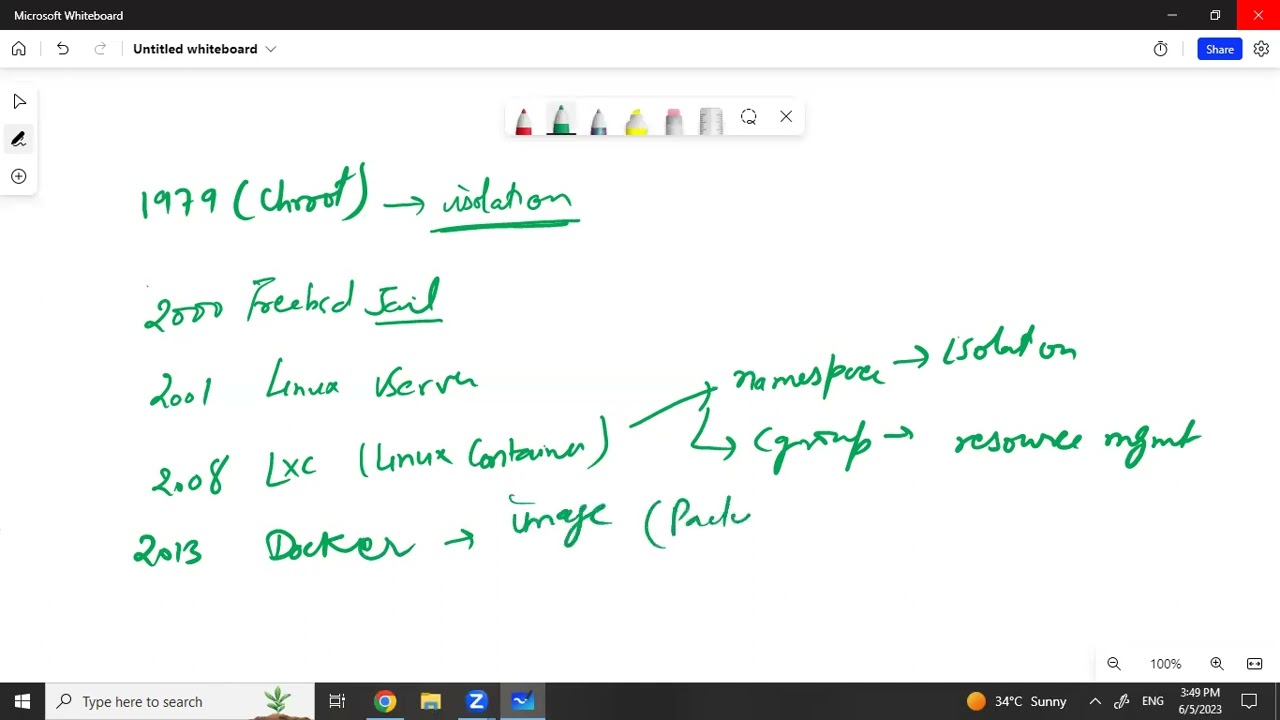 Microsoft Whiteboard
Untitled whiteboard
Share
1979 (Chroot) → isolation
2000 Freebsd Jail
2001 Linux VServer
namespace → isolation
2008 LXC (Linux Container)
cgroup → resource mgmt
2013 Docker → image (Pack
100%
Type here to search
34°C Sunny
ENG
3:49 PM
6/5/2023